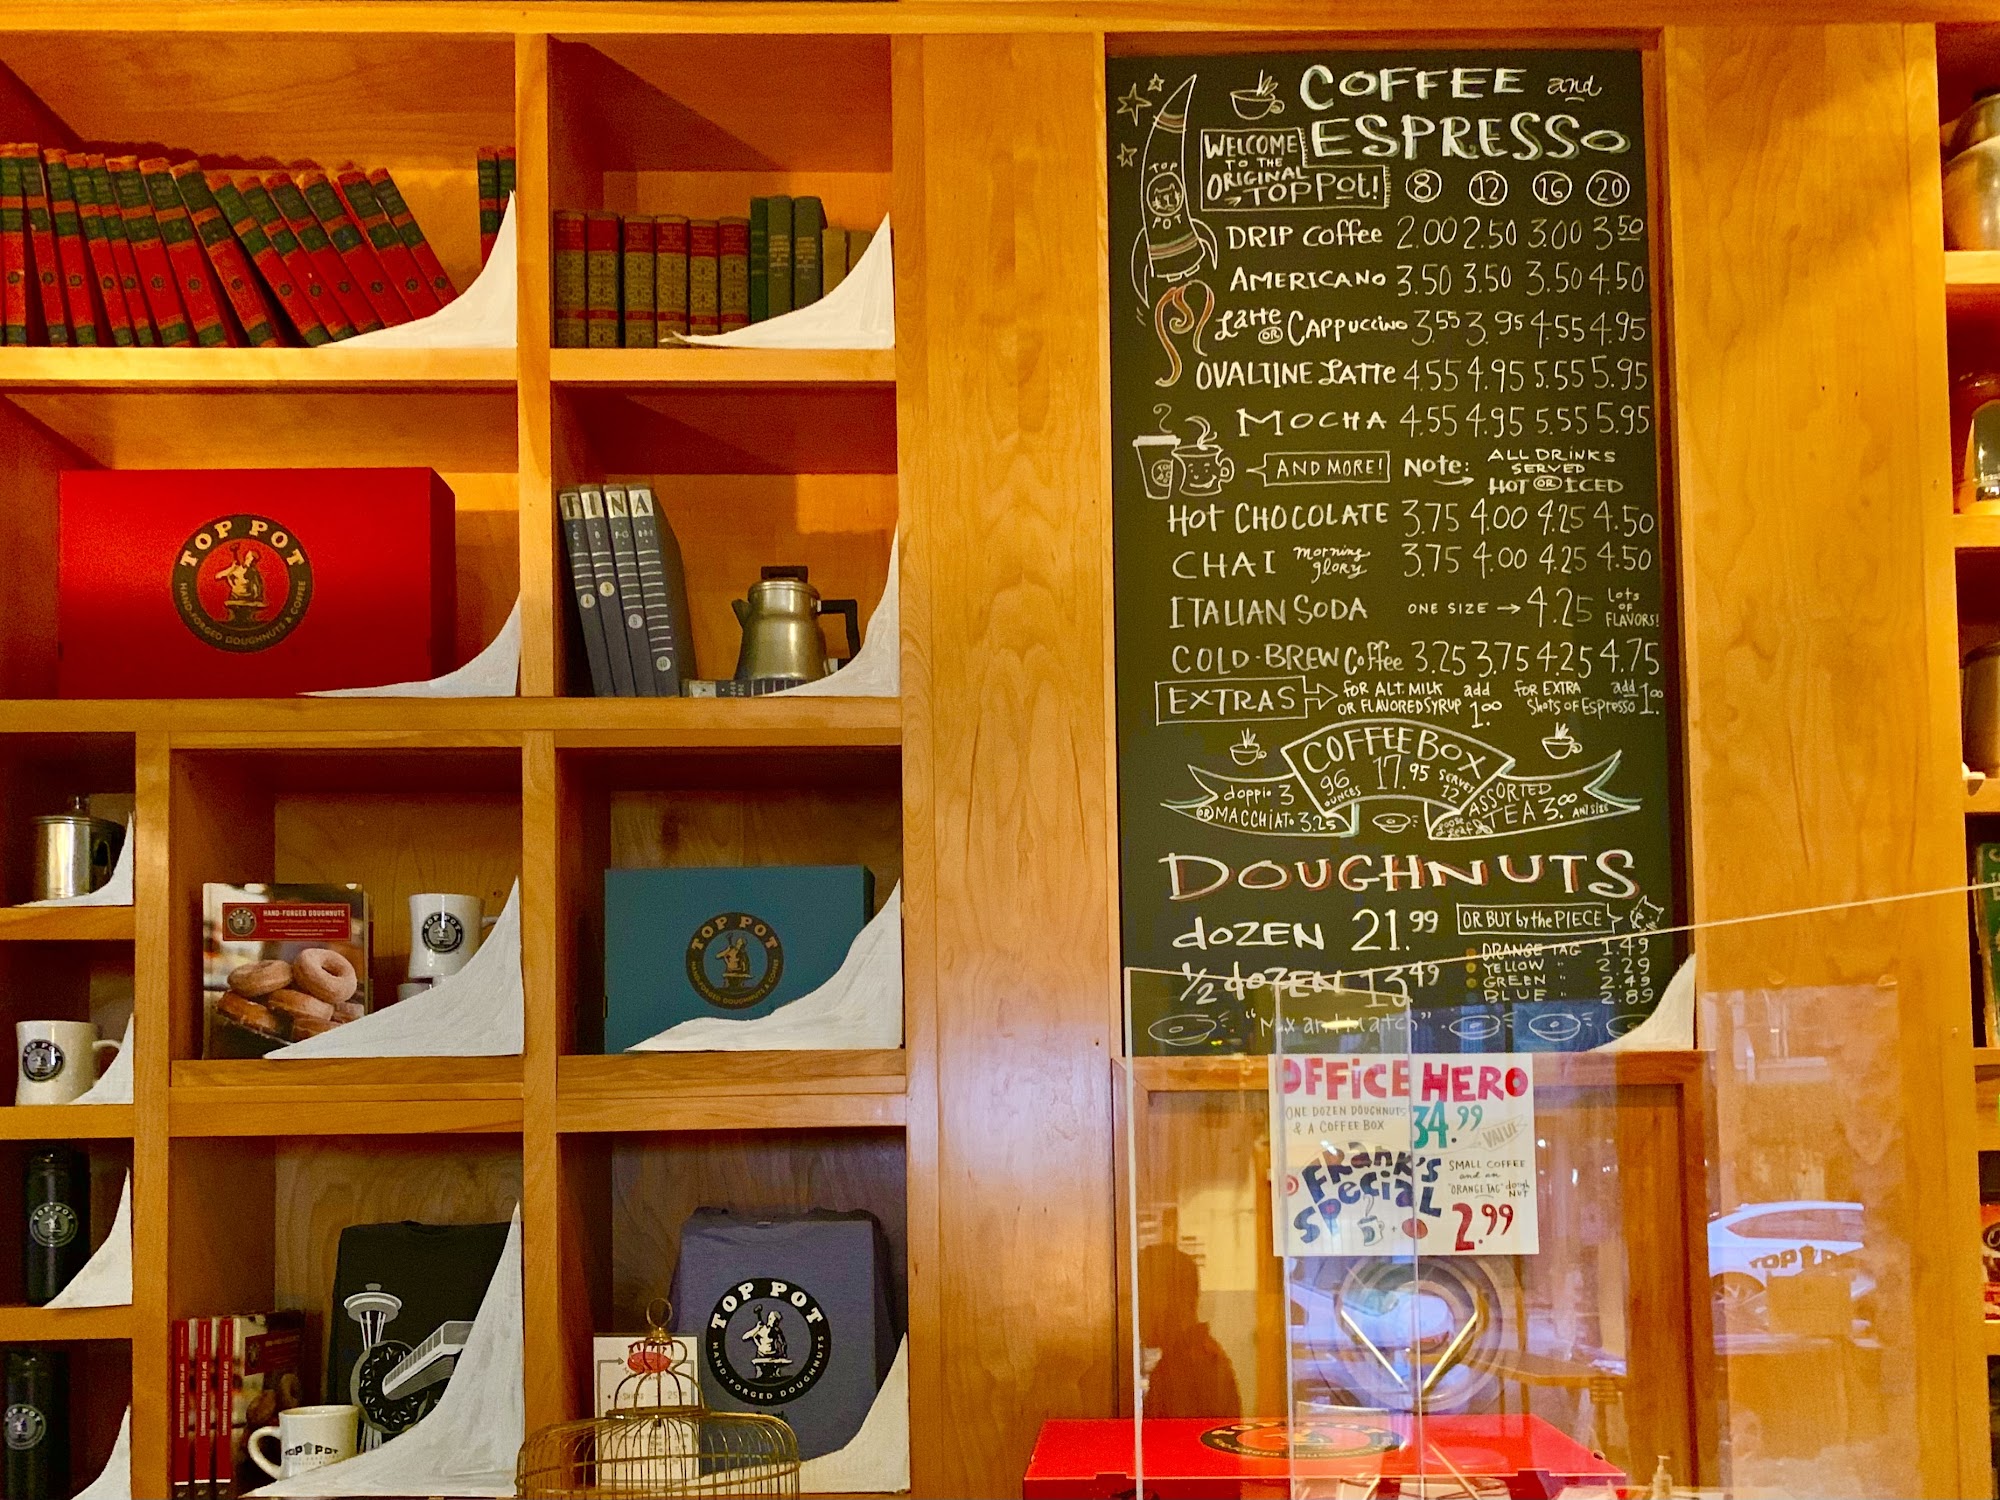 TINA
TOP POT
HAND-FORGED DOUGHNUTS & COFFEE
HAND-FORGED DOUGHNUTS
TOP POT
TOP POT
HAND-FORGED DOUGHNUTS & COFFEE
TOP POT
TOP POT
HAND-FORGED DOUGHNUTS
TOP POT
COFFEE and
ESPRESSO
WELCOME
TO THE
ORIGINAL
TOP POT!
TOP
POT
8 12 16 20
DRIP Coffee 2.00 2.50 3.00 3.50
AMERICANO 3.50 3.50 3.50 4.50
Latte OR CAPPUCCINO 3.55 3.95 4.55 4.95
OVALTINE LATTE 4.55 4.95 5.55 5.95
MOCHA 4.55 4.95 5.55 5.95
AND MORE! Note: ALL DRINKS
SERVED
HOT OR ICED
HOT CHOCOLATE 3.75 4.00 4.25 4.50
CHAI morning glory 3.75 4.00 4.25 4.50
ITALIAN SODA ONE SIZE → 4.25 Lots OF FLAVORS!
COLD-BREW Coffee 3.25 3.75 4.25 4.75
EXTRAS FOR ALT. MILK OR FLAVORED SYRUP add 1.00
FOR EXTRA Shots of Espresso add 1.00
COFFEE BOX
96 OUNCES 17.95 SERVES 12
doppio 3
OR MACCHIATO 3.25
ASSORTED
TEA 3.00 ANY SIZE
Loose Leaf
DOUGHNUTS
dOZEN 21.99
OR BUY by the PIECE
ORANGE TAG 1.49
YELLOW " 2.29
GREEN " 2.49
BLUE " 2.89
1/2 dOZEN 13.49
"Mix and Match"
OFFICE HERO
ONE DOZEN DOUGHNUTS
& A COFFEE BOX
34.99
VALUE
FRANK'S
SPECIAL
SMALL COFFEE
and an
"ORANGE TAG" dough NUT
2.99
TOP POT